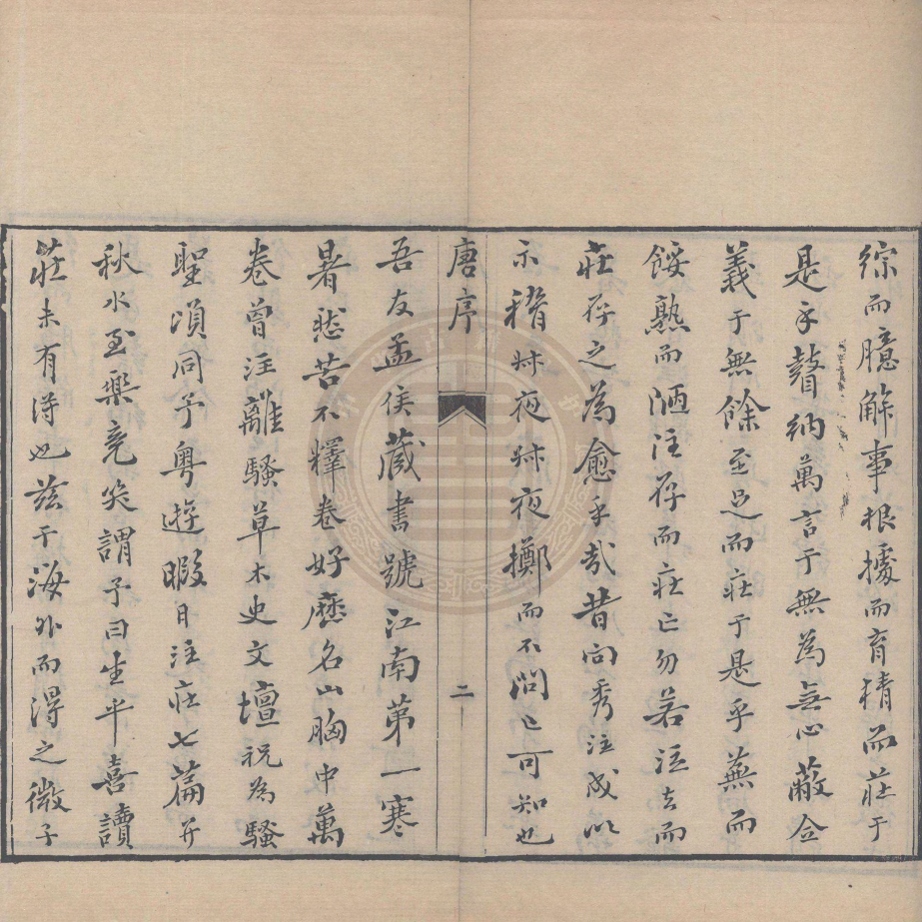 綜而臆解事根據而育精而莊于
是乎聱納萬言于無為無心蔽仝
義于無餘至足而莊于是乎蕪而
餒熟而陋注存而莊亡勿若注去而
莊存之為愈乎哉昔向秀注成以
示嵇叔夜叔夜擲而不問亡可知也
唐序
二
吾友孟侯藏書號江南第一寒
暑愁苦不釋卷好歷名山胸中萬
卷曾注離騷草木史文壇祝為騷
聖頃同予粵遊暇日注莊七篇并
秋水至樂竟笑謂予曰生平喜讀
莊未有得也茲于海外而得之微子